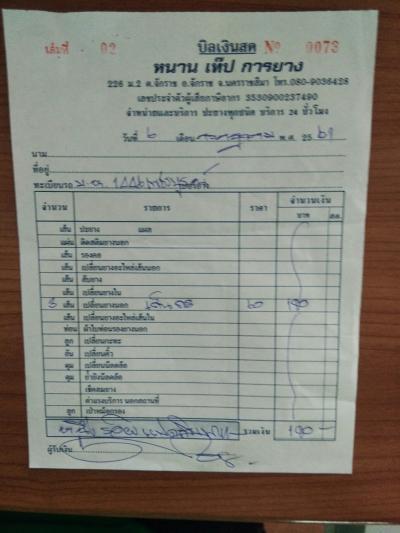 เล่มที่ 02 บิลเงินสด № 0073
หนาน เท๊ป การยาง
226 ม.2 ต.จักราช อ.จักราช จ.นครราชสีมา โทร.080-9036428
เลขประจำตัวผู้เสียภาษีอากร 3530900237490
จำหน่ายและบริการ ปะยางทุกชนิด บริการ 24 ชั่วโมง
วันที่ ๖ เดือน กรกฎาคม พ.ศ. 25 61
นาม
ที่อยู่
ทะเบียนรถ
จำนวน รายการ ราคา จำนวนเงิน
บาท สต.
เส้น ปะยาง แผล
แผ่น ติดสติมยางนอก
เส้น รองคอ
เส้น เปลี่ยนยางอะไหล่เส้นนอก
เส้น สับยาง
เส้น เปลี่ยนยางใน
เส้น เปลี่ยนยางนอก
เส้น เปลี่ยนยางอะไหล่เส้นใน
ท่อน ผ้าใบท่อนรองยางนอก
ลูก เปลี่ยนกะทะ
อัน เปลี่ยนคิ้ว
คุม เปลี่ยนน๊อตล้อ
คุม ย้ำยิงน๊อตล้อ
เช็คลมยาง
ค่าแรงบริการ นอกสถานที่
ลูก เป่าหม้อกรอง
รวมเงิน
ผู้รับเงิน